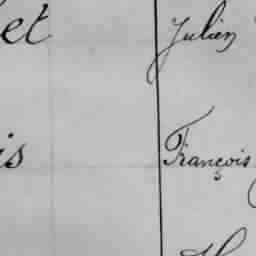 et Julien
is François